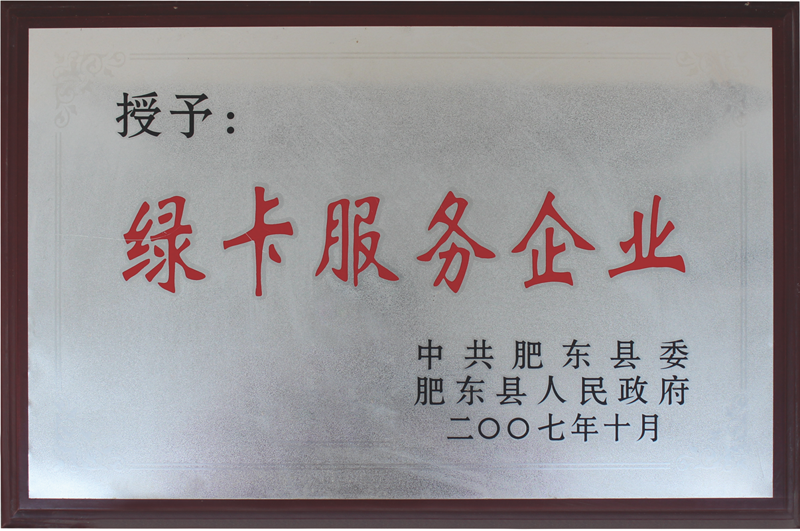 授予：
绿卡服务企业
中共肥东县委
肥东县人民政府
二〇〇七年十月